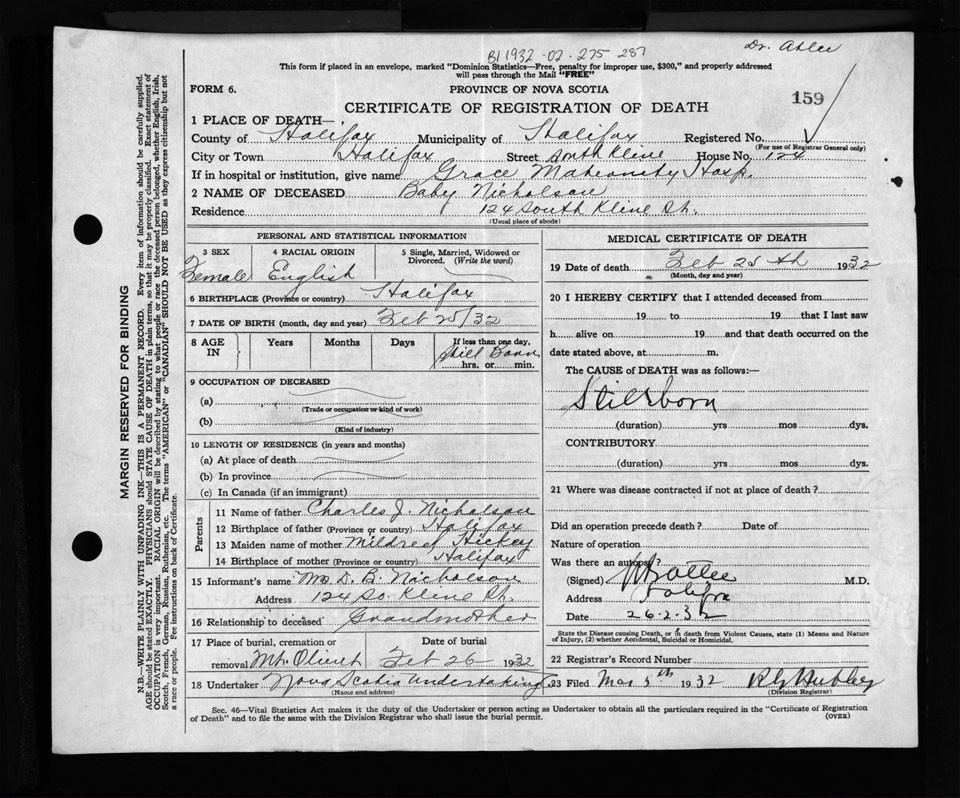 B1 1932-02-275 287
This form if placed in an envelope, marked "Dominion Statistics—Free, penalty for improper use, $300," and properly addressed
will pass through the Mail "FREE"
FORM 6. PROVINCE OF NOVA SCOTIA
CERTIFICATE OF REGISTRATION OF DEATH 159
1 PLACE OF DEATH—
County of Halifax Municipality of Halifax Registered No.
(For use of Registrar General only)
City or Town Halifax Street South Kline House No. 124
If in hospital or institution, give name Grace Maternity Hosp.
2 NAME OF DECEASED Baby Nicholson
Residence 124 South Kline St.
(Usual place of abode)
PERSONAL AND STATISTICAL INFORMATION
3 SEX 4 RACIAL ORIGIN 5 Single, Married, Widowed or
Divorced. (Write the word)
Female English
6 BIRTHPLACE (Province or country) Halifax
7 DATE OF BIRTH (month, day and year) Feb 25/32
8 AGE IN Years Months Days If less than one day,
Still Born
hrs. or min.
9 OCCUPATION OF DECEASED
(a)
(Trade or occupation or kind of work)
(b)
(Kind of industry)
10 LENGTH OF RESIDENCE (in years and months)
(a) At place of death
(b) In province
(c) In Canada (if an immigrant)
Parents
11 Name of father Charles J. Nicholson
12 Birthplace of father (Province or country) Halifax
13 Maiden name of mother Mildred Hickey
14 Birthplace of mother (Province or country) Halifax
15 Informant's name Mrs D. B. Nicholson
Address 124 So. Kline St.
16 Relationship to deceased Grandmother
17 Place of burial, cremation or Date of burial
removal Mt. Olivet Feb 26 1932
18 Undertaker Nova Scotia Undertaking
(Name and address)
MEDICAL CERTIFICATE OF DEATH
19 Date of death Feb 25th 1932
(Month, day and year)
20 I HEREBY CERTIFY that I attended deceased from
19 to 19 that I last saw
h alive on 19 and that death occurred on the
date stated above, at m.
The CAUSE of DEATH was as follows:—
Stillborn
(duration) yrs mos dys.
CONTRIBUTORY
(duration) yrs mos dys.
21 Where was disease contracted if not at place of death?
Did an operation precede death? Date of
Nature of operation
Was there an autopsy?
(Signed) M.D.
Address Halifax
Date 26.2.32
State the Disease causing Death, or in death from Violent Causes, state (1) Means and Nature
of Injury, (2) Whether Accidental, Suicidal or Homicidal.
22 Registrar's Record Number
23 Filed Mar 5th 1932
(Division Registrar)
Sec. 46—Vital Statistics Act makes it the duty of the Undertaker or person acting as Undertaker to obtain all the particulars required in the "Certificate of Registration
of Death" and to file the same with the Division Registrar who shall issue the burial permit. (OVER)
MARGIN RESERVED FOR BINDING
N.B.—WRITE PLAINLY WITH UNFADING INK—THIS IS A PERMANENT RECORD. Every item of information should be carefully supplied.
AGE should be stated EXACTLY. PHYSICIANS should STATE CAUSE OF DEATH in plain terms, so that it may be properly classified. Exact statement of
OCCUPATION is very important. RACIAL ORIGIN will be described by stating to what people or race the deceased person belonged, whether English, Irish,
Scotch, French, German, Russian, Ruthenian, etc. The terms "AMERICAN" or "CANADIAN" SHOULD NOT BE USED as they express citizenship but not
a race or people. See instructions on back of Certificate.